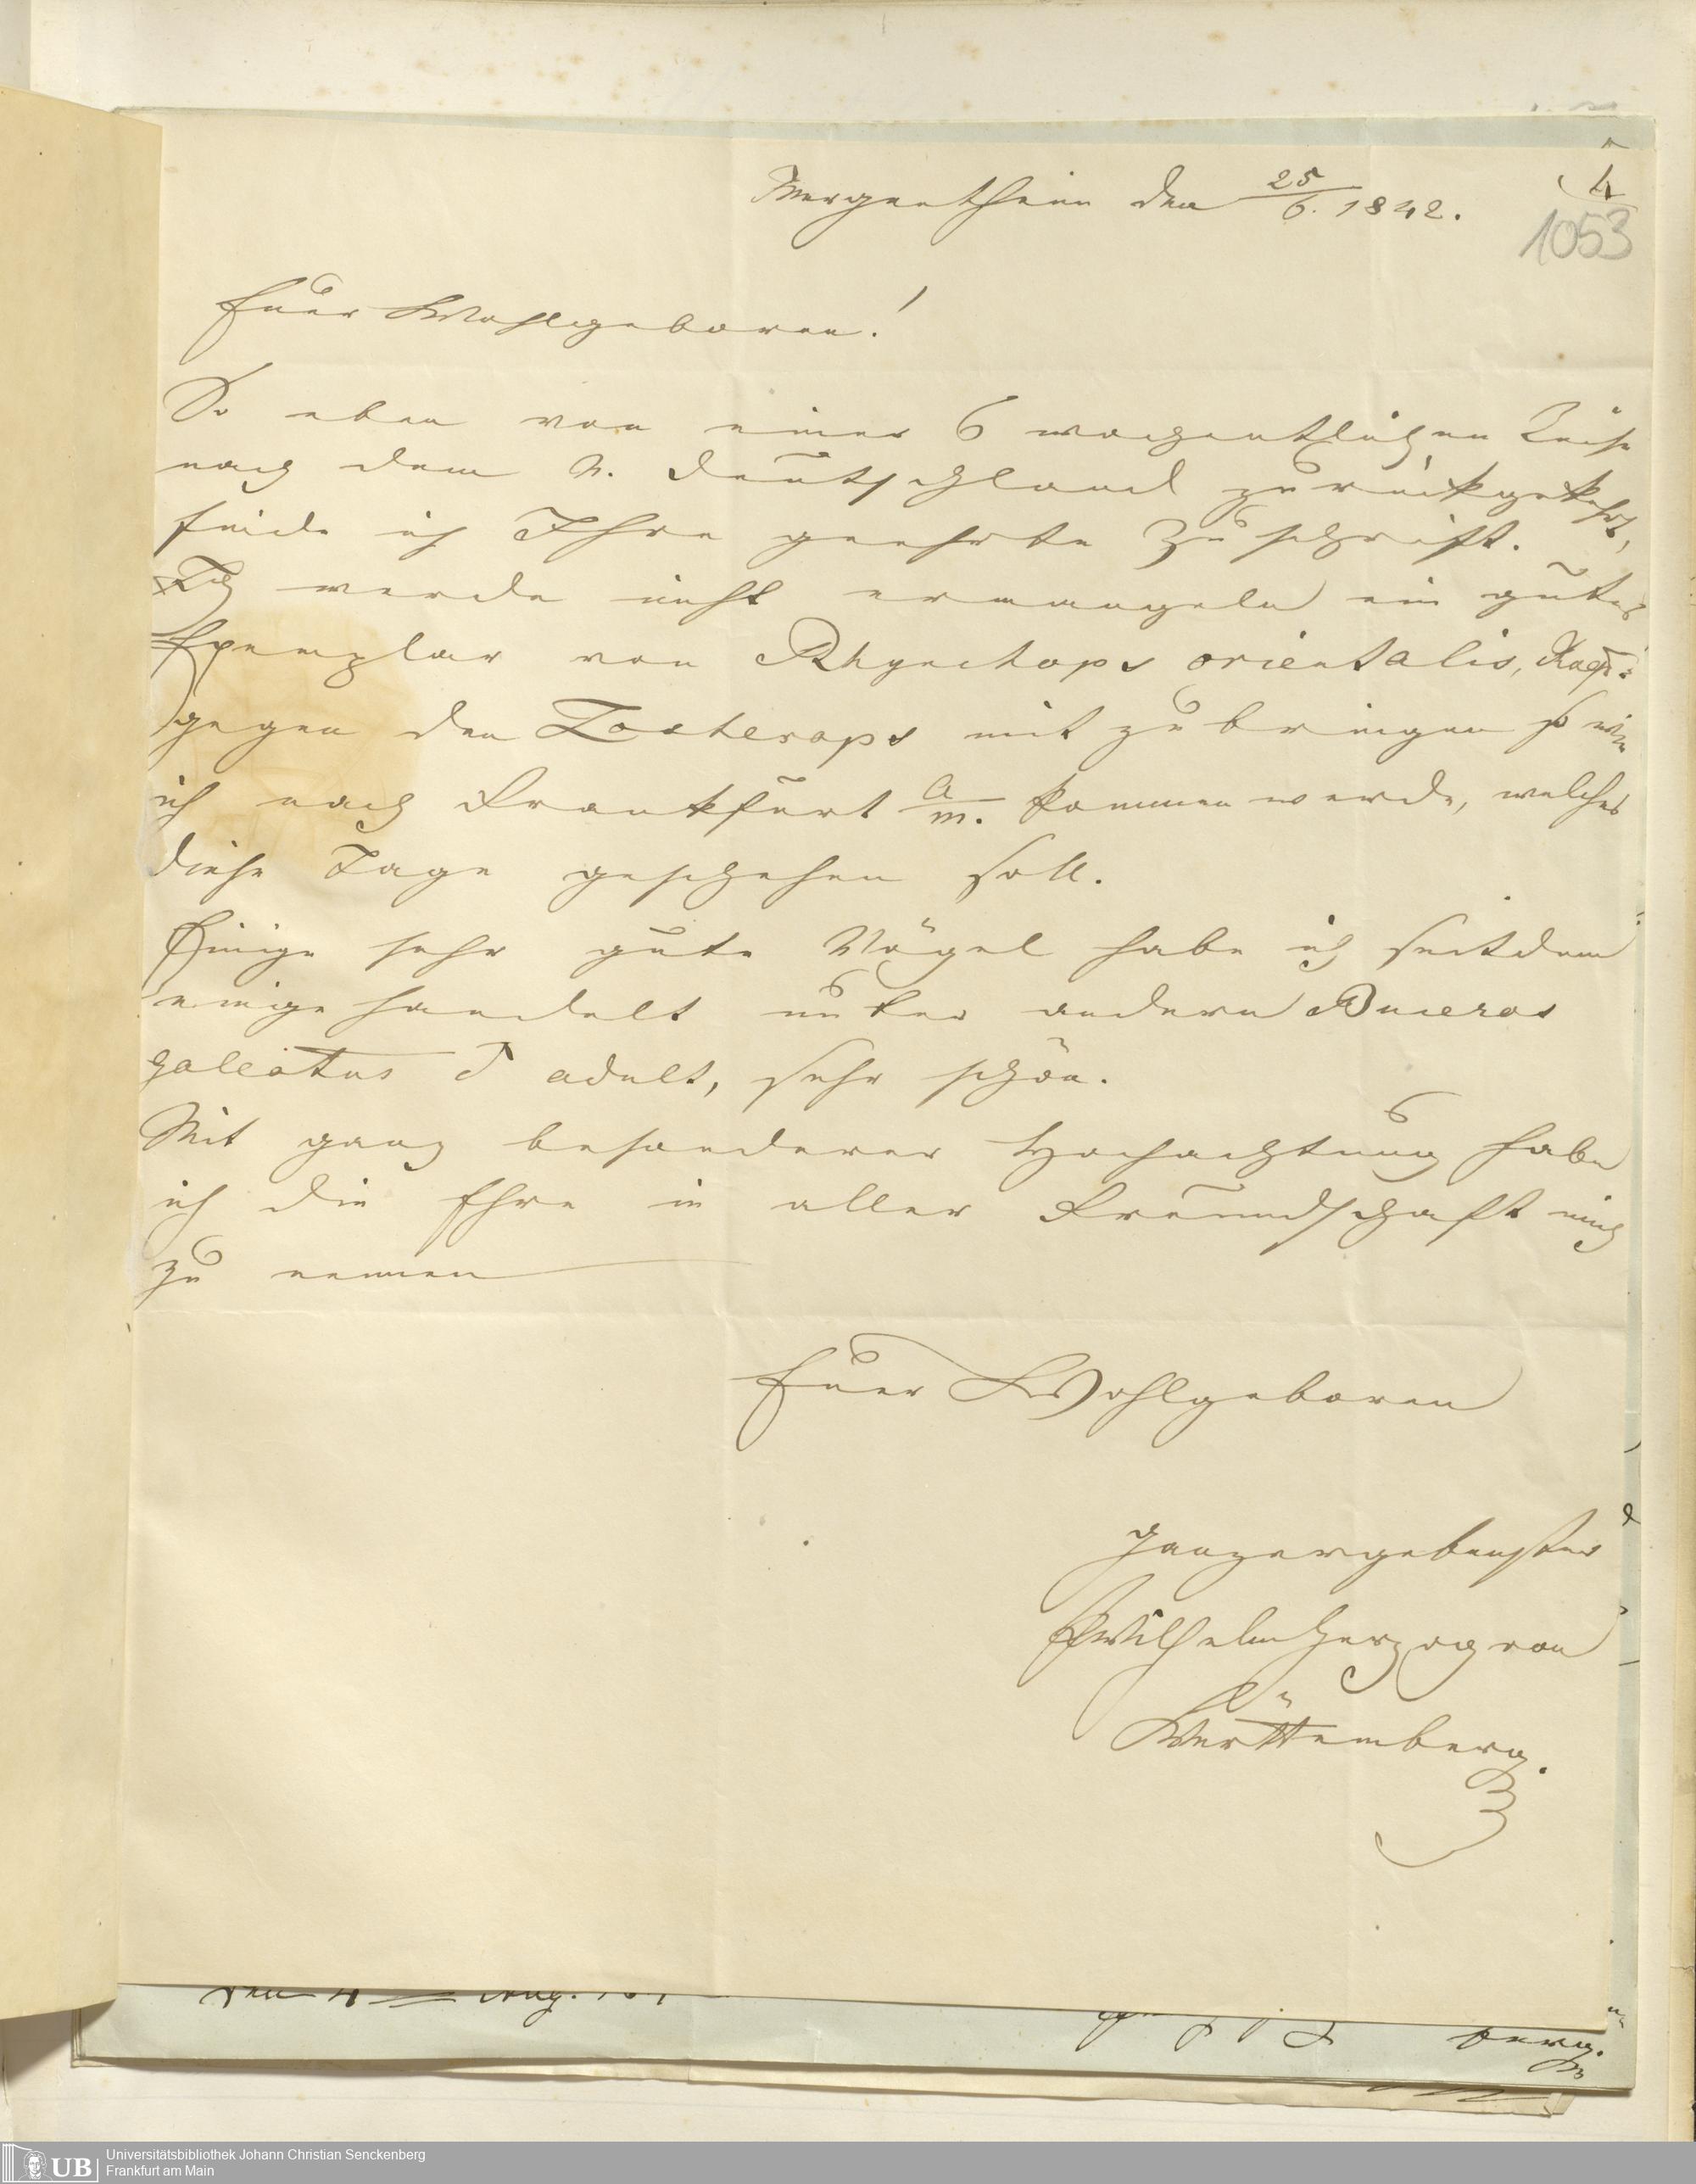 Mergentheim den 25/6. 1842.
4
1053
Euer Wohlgeboren!
So eben von einer 6 wochentlichen Reise
nach dem N. Deutschland zurückgekehrt,
finde ich Ihre geehrte Zuschrift.
Ich werde nicht ermangeln ein gutes
Exemplar von Rhynchops orientalis, Rüpp.
gegen den Zosterops mit zu bringen so wie
ich nach Frankfurt a/m. kommen werde, welches
diese Tage geschehen soll.
Einige sehr gute Vögel habe ich seitdem
eingehandelt unter andern Buceros
galeatus ♂ adult, sehr schön.
Mit ganz besonderer Hochachtung habe
ich die Ehre in aller Freundschaft mich
zu nennen
Euer Wohlgeboren
ganz ergebenster
Wilhelm Herzog von
Württemberg.
den 4 Aug.
berg.
UB Universitätsbibliothek Johann Christian Senckenberg
Frankfurt am Main